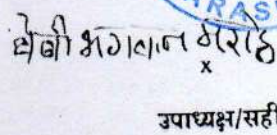 RAS
बेबी भगवान मेरोह
x
उपाध्यक्ष/सही